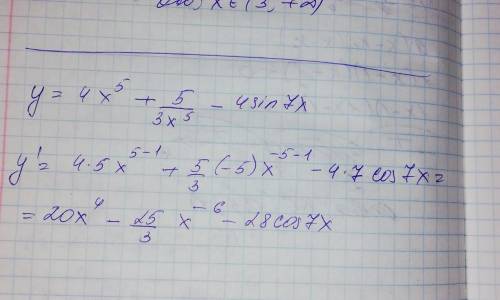 x∈(3, +∞)
y = 4x⁵ + 5/(3x⁵) − 4sin7x
y' = 4·5x⁵⁻¹ + 5/3 (−5)x⁻⁵⁻¹ − 4·7 cos7x =
= 20x⁴ − 25/3 x⁻⁶ − 28cos7x